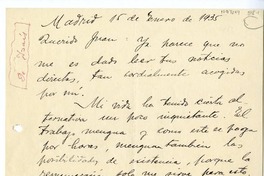 Madrid 15 de Enero de 1935
Querido Juan: Ya parece que no
me es dado leer tus noticias
directas, tan cordialmente acogidas
por mí.
Mi vida ha tenido cierta al
ternativa un poco inquietante. El
trabajo mengua y como este se paga
por horas, menguan también las
posibilidades de existencia, porque la
solo me sirve para esto,